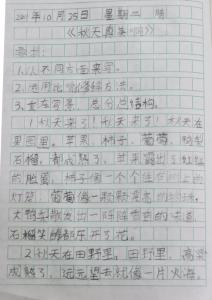 201年10月25日 星期二 晴
《秋天真美啊》
要求:
1.从不同方面来写。
2.运用比喻修辞方法。
3.文章写景,总分总结构。
1秋天来了!秋天来了!秋天在
果园里。苹果、柿子、葡萄、鸭梨
石榴,都成熟了,苹果露出了红红
的脸蛋,柿子像一个个挂在树上的
灯笼,葡萄像一颗颗亮亮的
大鸭梨散发出一阵阵香甜的味道,
石榴笑都乐开了花。
2秋天在田野里,田野里,高粱
成熟了,远远望去就像一片火海。